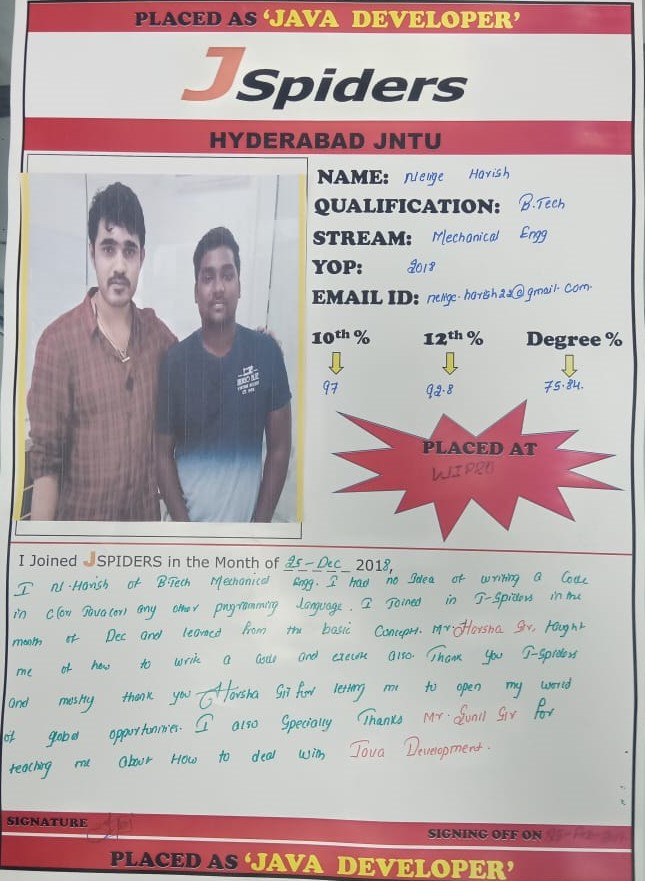 PLACED AS ‘JAVA DEVELOPER’
JSpiders
HYDERABAD JNTU
NAME: Nellge Harish
QUALIFICATION: B.Tech
STREAM: Mechanical Engg
YOP: 2018
EMAIL ID: nellge.harish22@gmail.com.
10th % 12th % Degree %
97 92.8 75.84.
PLACED AT
WIPRO
I Joined JSPIDERS in the Month of 25-Dec 2018,
I N.Harish of BTech Mechanical Engg. I had no Idea of writing a Code
in C(or) Java(or) any other programming language. I Joined in J-Spiders in the
month of Dec and learned from the basic Concepts. Mr.Harsha Sir, taught
me of how to write a Code and execute also. Thank you J-Spiders
and mostly thank you Harsha Sir for letting me to open my world
of global opportunities. I also Specially Thanks Mr. Sunil Sir for
teaching me about How to deal with Java Development.
SIGNATURE
SIGNING OFF ON
PLACED AS ‘JAVA DEVELOPER’